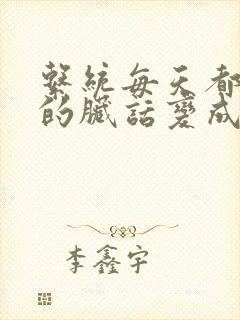 繫統每天都
的臟話變成
李鑫宇